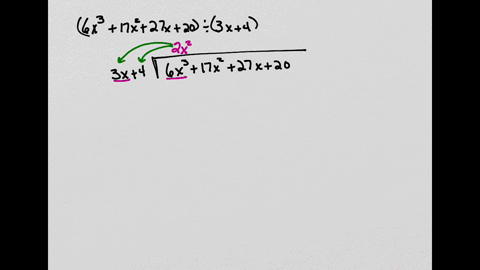 (6x³+17x²+27x+20)÷(3x+4)
2x²
3x+4 6x³+17x²+27x+20